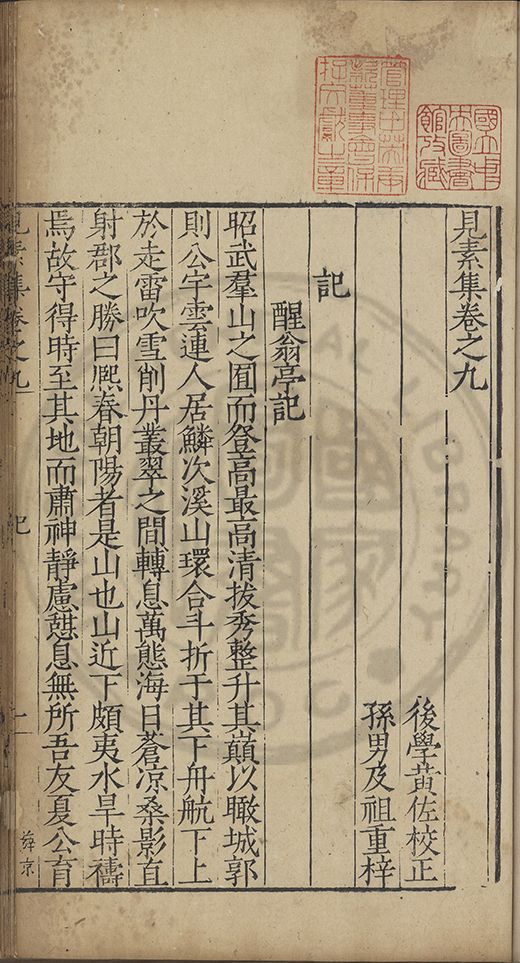 國立中
央圖書
館收藏
管理中英庚
款董事會保
存文獻之章
見素集卷之九
後學黃佐校正
孫男及祖重梓
記
醒翁亭記
昭武羣山之囿而登高最高清拔秀整升其巔以瞰城郭
則公宇雲連人居鱗次溪山環合斗折于其下舟航下上
於走雷吹雪削丹叢翠之間轉息萬態海日蒼凉桑影直
射郡之勝曰熙春朝陽者是山也山近下頗夷水旱時禱
焉故守得時至其地而肅神靜慮憇息無所吾友夏公育
見素集卷之九
記
一